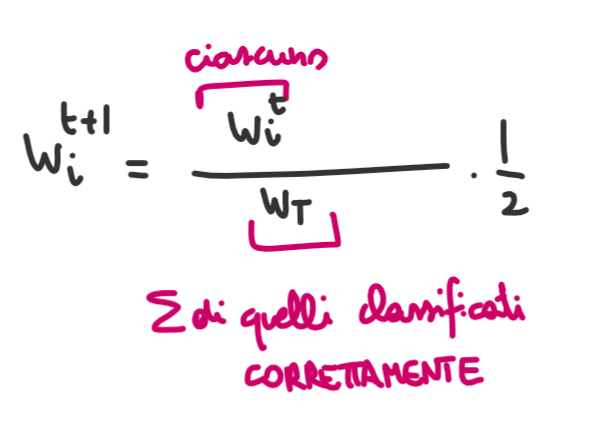 ciascuno
wᵢᵗ⁺¹ = wᵢᵗ / w_T · 1/2
Σ di quelli classificati
CORRETTAMENTE